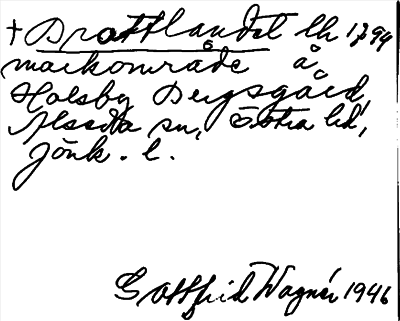 + Brottlandet lh 1794
markområde å
Holsby Bergsgård,
Alseda sn, Östra hd,
Jönk. l.
Gottfrid Wagnér 1946